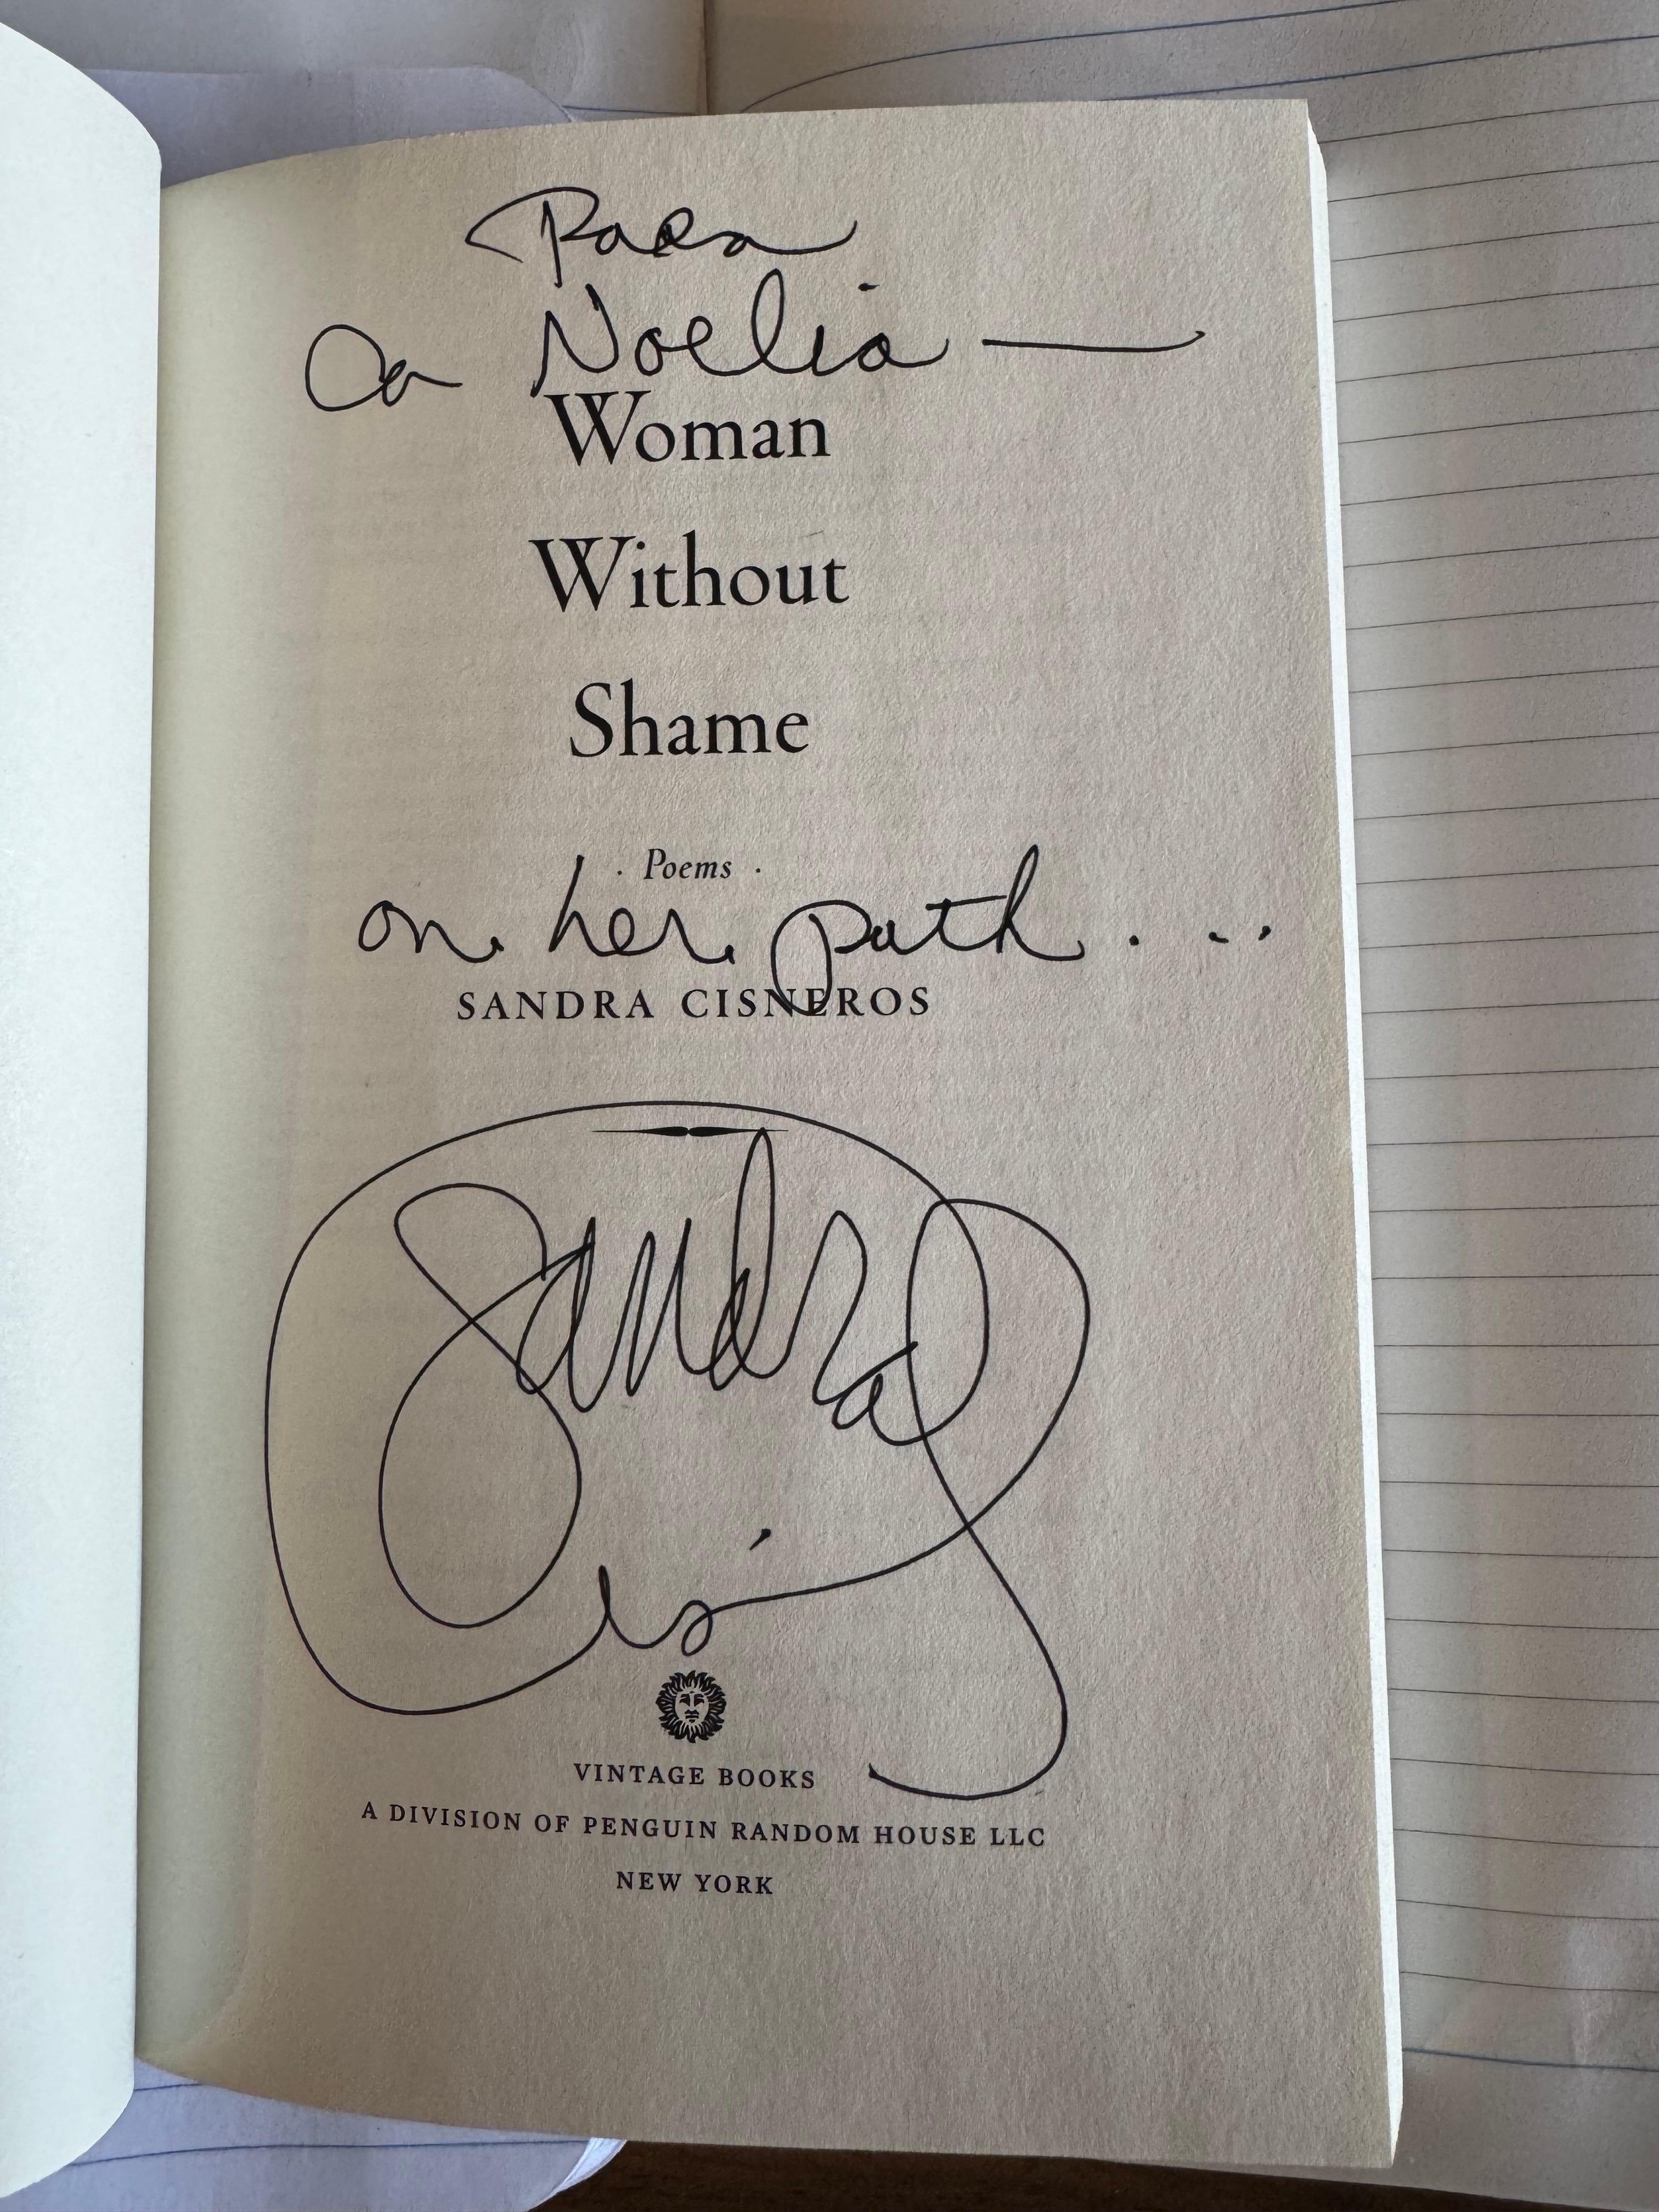 Para
Noelia —
a
Woman
Without
Shame
· Poems ·
on her path . . .
SANDRA CISNEROS
Sandra
Cis
VINTAGE BOOKS
A DIVISION OF PENGUIN RANDOM HOUSE LLC
NEW YORK